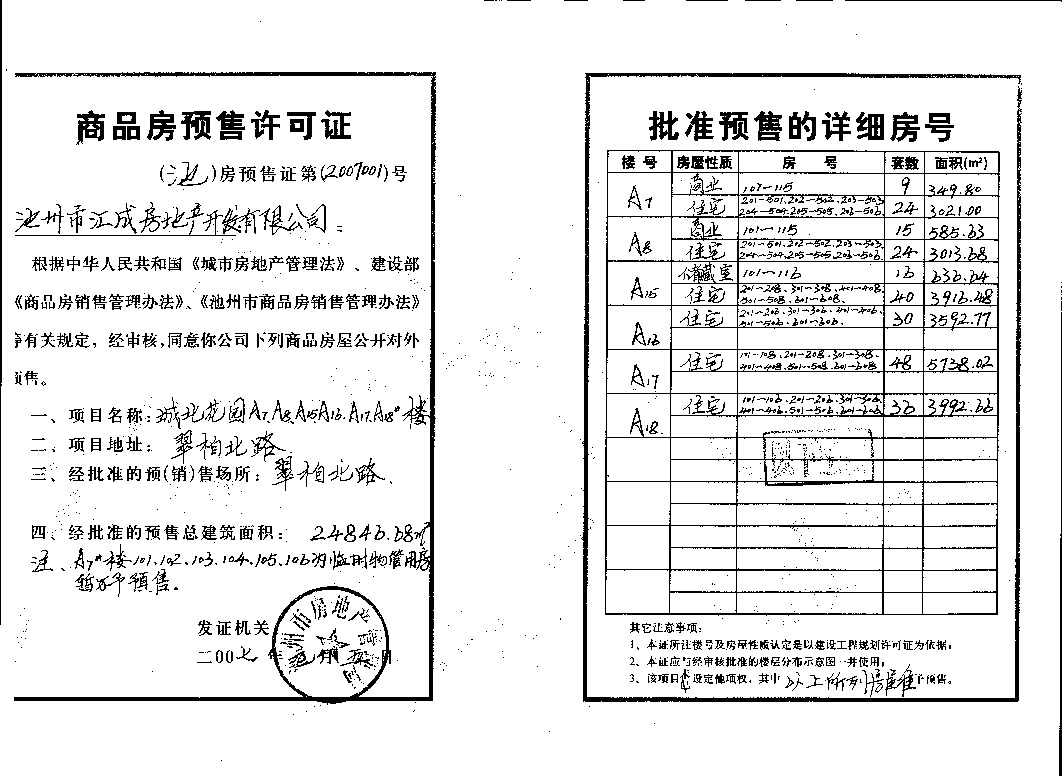 商品房预售许可证
(池)房预售证第(2007001)号
池州市汇成房地产开发有限公司：
根据中华人民共和国《城市房地产管理法》、建设部
《商品房销售管理办法》、《池州市商品房销售管理办法》
等有关规定，经审核，同意你公司下列商品房屋公开对外
预售。
一、项目名称：城北花园A7.A8.A15A16.A17.A18#楼
二、项目地址：翠柏北路.
三、经批准的预(销)售场所：翠柏北路.
四、经批准的预售总建筑面积：24846.68㎡
注、A7#楼101.102.103.104.105.106为临时物管用房
暂不予预售。
发证机关
二00七年 月 日
池州市房地产管理局
批准预售的详细房号
楼号 房屋性质 房号 套数 面积(m²)
A7 商业 107—115 9 349.80
住宅 201—501.202—502.203—503. 204—504.205—505.206—506. 24 3021.00
A8 商业 101—115 15 585.63
住宅 201—501.202—502.203—503. 204—504.205—505.206—506. 24 3013.68
A15 储藏室 101—116 16 636.64
住宅 201—208.301—308.401—408. 501—508.601—608. 40 3916.48
A16 住宅 201—206.301—306.401—406. 501—506.601—606. 30 3592.77
A17 住宅 101—108.201—208.301—308. 401—408.501—508.601—608 48 5738.02
A18. 住宅 101—106.201—206.301—306. 401—406.501—506.601—606 36 3992.66
以下
其它注意事项：
1、本证所注楼号及房屋性质认定是以建设工程规划许可证为依据；
2、本证应与经审核批准的楼层分布示意图一并使用；
3、该项目 设定他项权，其中以上所列房屋准予预售。